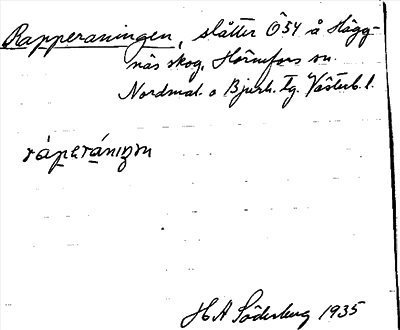 Rapperaningen, slåtter Ö54 å Hägg-
näs skog, Hörnefors sn.
Nordmal. o Bjurh. tg. Västerb. l.
ráperánıŋən
H A Söderberg 1935